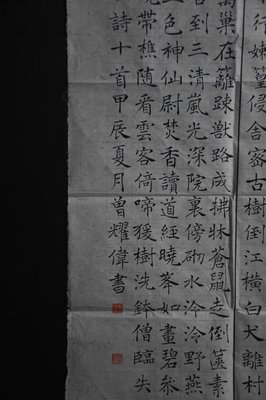 行踈篁侵舍密古樹倒江橫白犬離村
巢在籬踈獸路成拂牀蒼鼠走倒篋素
到三清嵐光深院裏傍砌水泠泠野燕
色神仙尉焚香讀道經曉峯如畫碧參
帶樵隨看雲客倚啼猨樹洗鉢僧臨失
詩十首甲辰夏月曾耀偉書